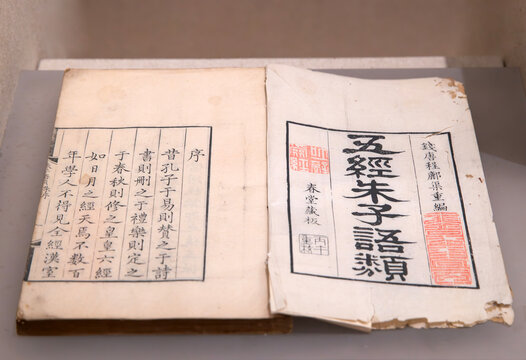 錢唐程鄰渠重編
五經朱子語類
春堂藏板
序
昔孔子于易則贊之于詩
書則刪之于禮樂則定之
于春秋則修之皇皇六經
如日月之經天焉不數百
年學人不得見全經漢室